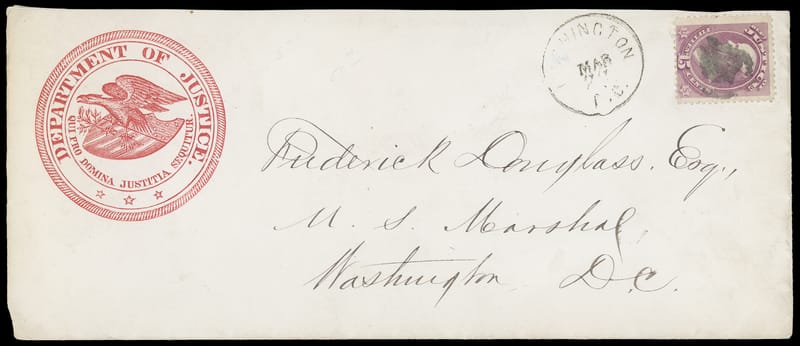 DEPARTMENT OF JUSTICE.
QUI PRO DOMINA JUSTITIA SEQUITUR.
WASHINGTON
MAR
D.C.
Frederick Douglass. Esq.,
U. S. Marshal,
Washington D.C.